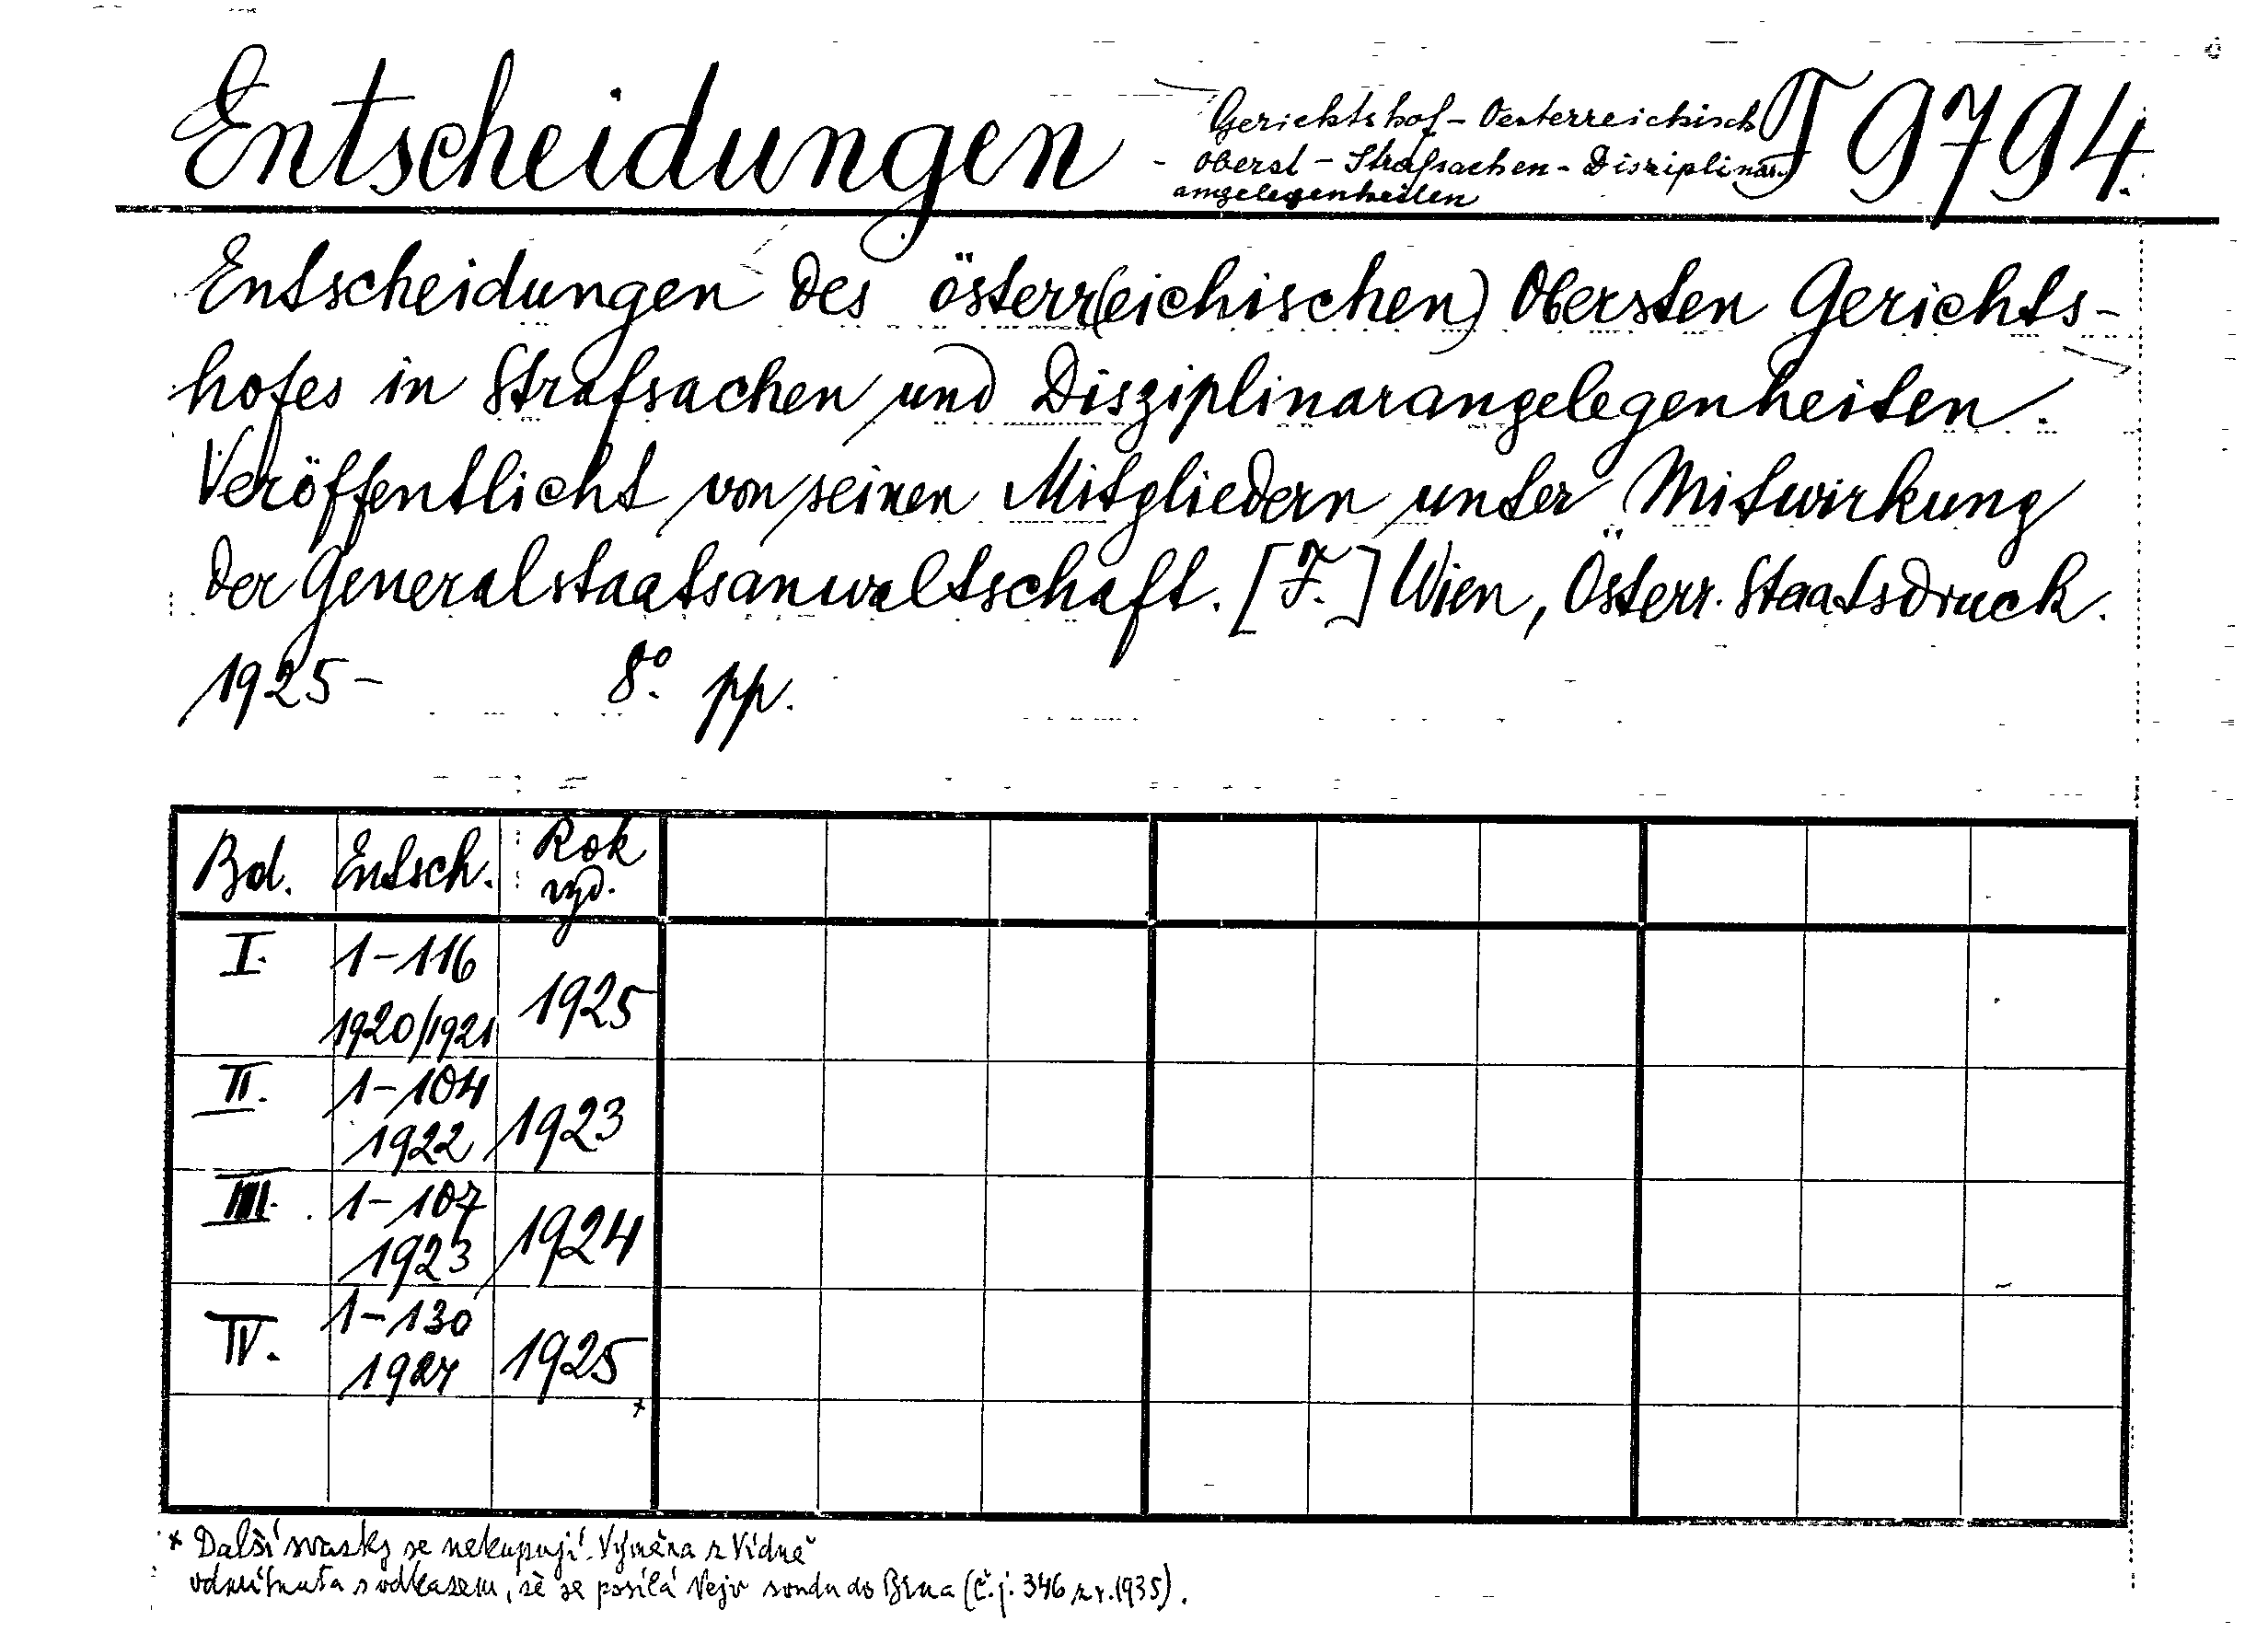 Entscheidungen
Gerichtshof - Oesterreichisch
- Oberst - Strafsachen - Disziplinar-
angelegenheiten
T 9794.
Entscheidungen des österr(eichischen) Obersten Gerichts-
hofes in Strafsachen und Disziplinarangelegenheiten.
Veröffentlicht von seinen Mitgliedern unter Mitwirkung
der Generalstaatsanwaltschaft. [F.] Wien, Österr. Staatsdruck.
1925- 8°. pp.
Bd. Entsch. Rok vyd.
I. 1-116 1920/1921 1925
II. 1-104 1922 1923
III. 1-107 1923 1924
IV. 1-130 1924 1925 x
x Další svazky se nekupují. Výměna z Vídně
odmítnuta s odkazem, že se posílá Nejv. soudu do Brna (č.j. 346 z r. 1935).